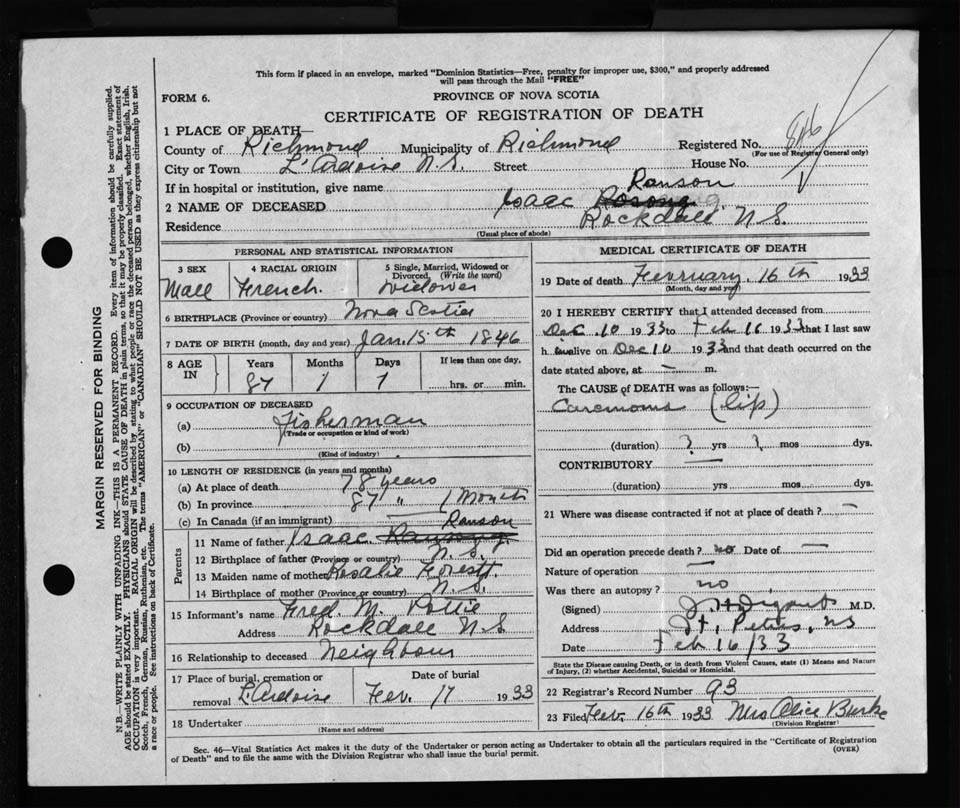 This form if placed in an envelope, marked "Dominion Statistics—Free, penalty for improper use, $300," and properly addressed
will pass through the Mail "FREE"
FORM 6.
PROVINCE OF NOVA SCOTIA
CERTIFICATE OF REGISTRATION OF DEATH
1 PLACE OF DEATH—
County of Richmond Municipality of Richmond Registered No.
(For use of Registrar General only)
City or Town L'Ardoise N.S. Street House No.
If in hospital or institution, give name
2 NAME OF DECEASED Isaac Ranson
Residence Rockdale N.S.
(Usual place of abode)
PERSONAL AND STATISTICAL INFORMATION
3 SEX Male
4 RACIAL ORIGIN French
5 Single, Married, Widowed or Divorced, (Write the word) Widower
6 BIRTHPLACE (Province or country) Nova Scotia
7 DATE OF BIRTH (month, day and year) Jan. 15th 1846
8 AGE IN Years Months Days If less than one day,
87 1 1 hrs. or min.
9 OCCUPATION OF DECEASED
(a) Fisherman
(Trade or occupation or kind of work)
(b)
(Kind of industry)
10 LENGTH OF RESIDENCE (in years and months)
(a) At place of death 78 years
(b) In province 87 " 1 Month
(c) In Canada (if an immigrant) —
Parents
11 Name of father Isaac Ranson
12 Birthplace of father (Province or country) N.S.
13 Maiden name of mother Rosalie Forest
14 Birthplace of mother (Province or country) N.S.
15 Informant's name Fred M. Pottie
Address Rockdale N S
16 Relationship to deceased Neighbour
17 Place of burial, cremation or removal L'Ardoise Date of burial Fev. 17 1933
18 Undertaker
(Name and address)
MEDICAL CERTIFICATE OF DEATH
19 Date of death February 16th 1933
(Month, day and year)
20 I HEREBY CERTIFY that I attended deceased from
Dec. 10 1933 to Feb 16 1933 that I last saw
h im alive on Dec 10 1933 and that death occurred on the
date stated above, at — m.
The CAUSE of DEATH was as follows:—
(lip)
(duration) ? yrs ? mos dys.
CONTRIBUTORY —
(duration) yrs mos dys.
21 Where was disease contracted if not at place of death? —
Did an operation precede death? no Date of —
Nature of operation —
Was there an autopsy? no
(Signed) M.D.
Address St. Peters, NS
Date Feb 16/33
State the Disease causing Death, or in death from Violent Causes, state (1) Means and Nature
of Injury, (2) whether Accidental, Suicidal or Homicidal.
22 Registrar's Record Number 93
23 Filed Fev. 16th 1933 Mrs Alice Burke
(Division Registrar)
Sec. 46—Vital Statistics Act makes it the duty of the Undertaker or person acting as Undertaker to obtain all the particulars required in the "Certificate of Registration
of Death" and to file the same with the Division Registrar who shall issue the burial permit. (OVER)
MARGIN RESERVED FOR BINDING
N.B.—WRITE PLAINLY WITH UNFADING INK—THIS IS A PERMANENT RECORD. Every item of information should be carefully supplied.
AGE should be stated EXACTLY. PHYSICIANS should STATE CAUSE OF DEATH in plain terms, so that it may be properly classified. Exact statement of
OCCUPATION is very important. RACIAL ORIGIN will be described by stating to what people or race the deceased person belonged, whether English, Irish,
Scotch, French, German, Russian, Ruthenian, etc. The terms "AMERICAN" or "CANADIAN" SHOULD NOT BE USED as they express citizenship but not
a race or people. See instructions on back of Certificate.